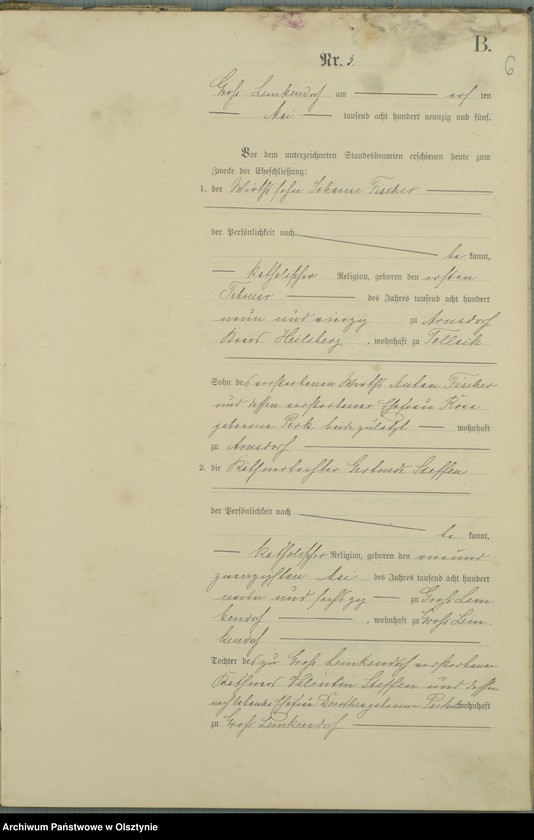 B.
6
Nr. 3.
Groß Lemkendorf am elf ten
Mai tausend acht hundert neunzig und fünf.
Vor dem unterzeichneten Standesbeamten erschienen heute zum
Zwecke der Eheschließung:
1. der Wirthssohn Johann Fischer
der Persönlichkeit nach
be kannt,
katholischer Religion, geboren den ersten
Februar des Jahres tausend acht hundert
neun und vierzig zu Arnsdorf
Kreis Heilsberg, wohnhaft zu Tollack
Sohn des verstorbenen Wirths Anton Fischer
und dessen verstorbener Ehefrau Rosa
geborene beide zuletzt wohnhaft
zu Arnsdorf
2. die Käthnertochter Gertrude Steffen
der Persönlichkeit nach
be kannt,
katholischer Religion, geboren den einund
zwanzigsten Mai des Jahres tausend acht hundert
neun und sechszig zu Groß Lem
kendorf, wohnhaft zu Groß Lem
kendorf
Tochter des zu Groß Lemkendorf verstorbenen
Käthners Valentin Steffen und dessen
noch lebende Ehefrau Dorothea geborene wohnhaft
zu Groß Lemkendorf
Archiwum Państwowe w Olsztynie